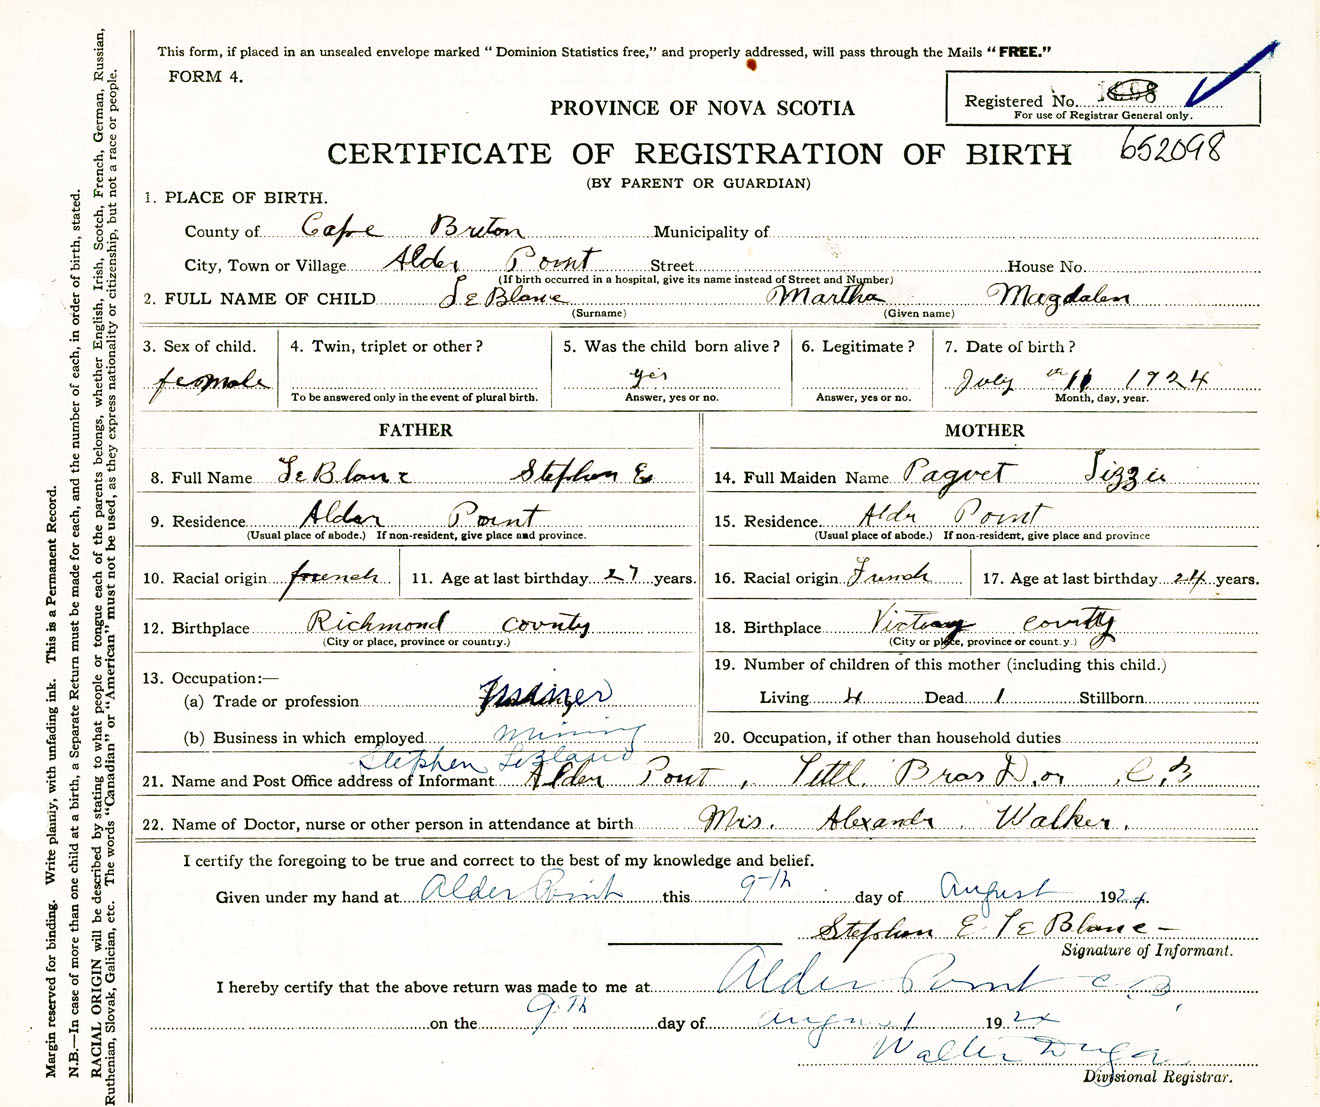 This form, if placed in an unsealed envelope marked "Dominion Statistics free," and properly addressed, will pass through the Mails "FREE."
FORM 4.
Registered No.
For use of Registrar General only.
PROVINCE OF NOVA SCOTIA
652098
CERTIFICATE OF REGISTRATION OF BIRTH
(BY PARENT OR GUARDIAN)
1. PLACE OF BIRTH.
County of Cape Breton Municipality of
City, Town or Village Alder Point Street House No.
(If birth occurred in a hospital, give its name instead of Street and Number)
2. FULL NAME OF CHILD LeBlanc Martha Magdalen
(Surname) (Given name)
3. Sex of child. 4. Twin, triplet or other? 5. Was the child born alive? 6. Legitimate? 7. Date of birth?
female yes July 11th 1924
To be answered only in the event of plural birth. Answer, yes or no. Answer, yes or no. Month, day, year.
FATHER MOTHER
8. Full Name LeBlanc Stephen E 14. Full Maiden Name Paquet Lizzie
9. Residence Alder Point 15. Residence Alder Point
(Usual place of abode.) If non-resident, give place and province. (Usual place of abode.) If non-resident, give place and province
10. Racial origin french 11. Age at last birthday 27 years. 16. Racial origin French 17. Age at last birthday 24 years.
12. Birthplace Richmond county 18. Birthplace Victory county
(City or place, province or country.) (City or place, province or count.y.)
13. Occupation:— 19. Number of children of this mother (including this child.)
(a) Trade or profession miner Living 4 Dead 1 Stillborn
(b) Business in which employed mining 20. Occupation, if other than household duties
Stephen LeBlanc
21. Name and Post Office address of Informant Alder Pont, Little Bras D, or C, B
22. Name of Doctor, nurse or other person in attendance at birth Mrs. Alexandr Walker.
I certify the foregoing to be true and correct to the best of my knowledge and belief.
Given under my hand at Alder Point this 9th day of August 1924.
Stephen E LeBlanc
Signature of Informant.
I hereby certify that the above return was made to me at Alder Point C. B.
on the 9th day of August 1924
Walter
Divisional Registrar.
Margin reserved for binding. Write plainly, with unfading ink. This is a Permanent Record.
N.B.—In case of more than one child at a birth, a Separate Return must be made for each, and the number of each, in order of birth, stated.
RACIAL ORIGIN will be described by stating to what people or tongue each of the parents belongs, whether English, Irish, Scotch, French, German, Russian,
Ruthenian, Slovak, Galician, etc. The words "Canadian" or "American" must not be used, as they express nationality or citizenship, but not a race or people.